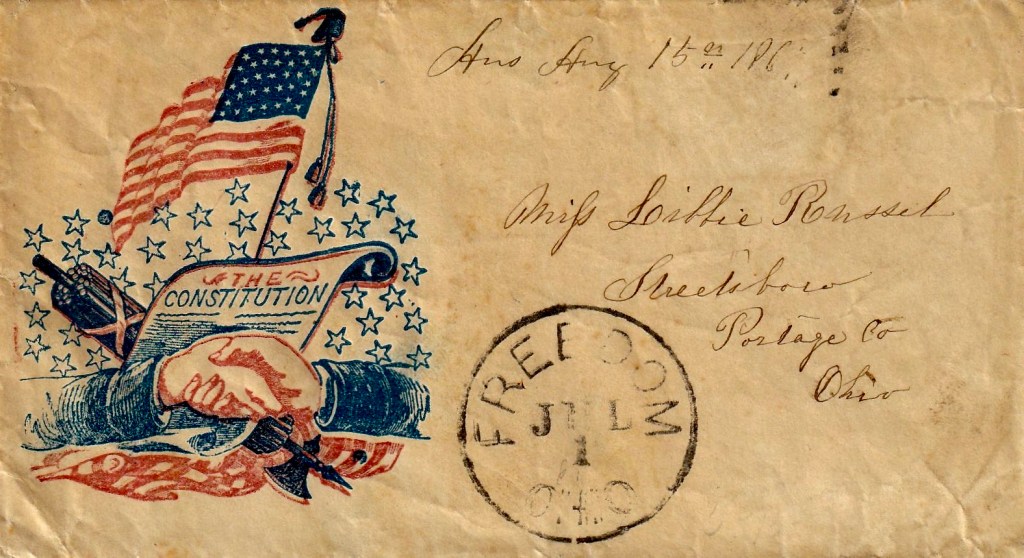 Ans Aug 15th 186
THE
CONSTITUTION
Miss Libbie Russel
Streetsboro
Portage Co
Ohio
FREEDOM
JUL
1
OHIO